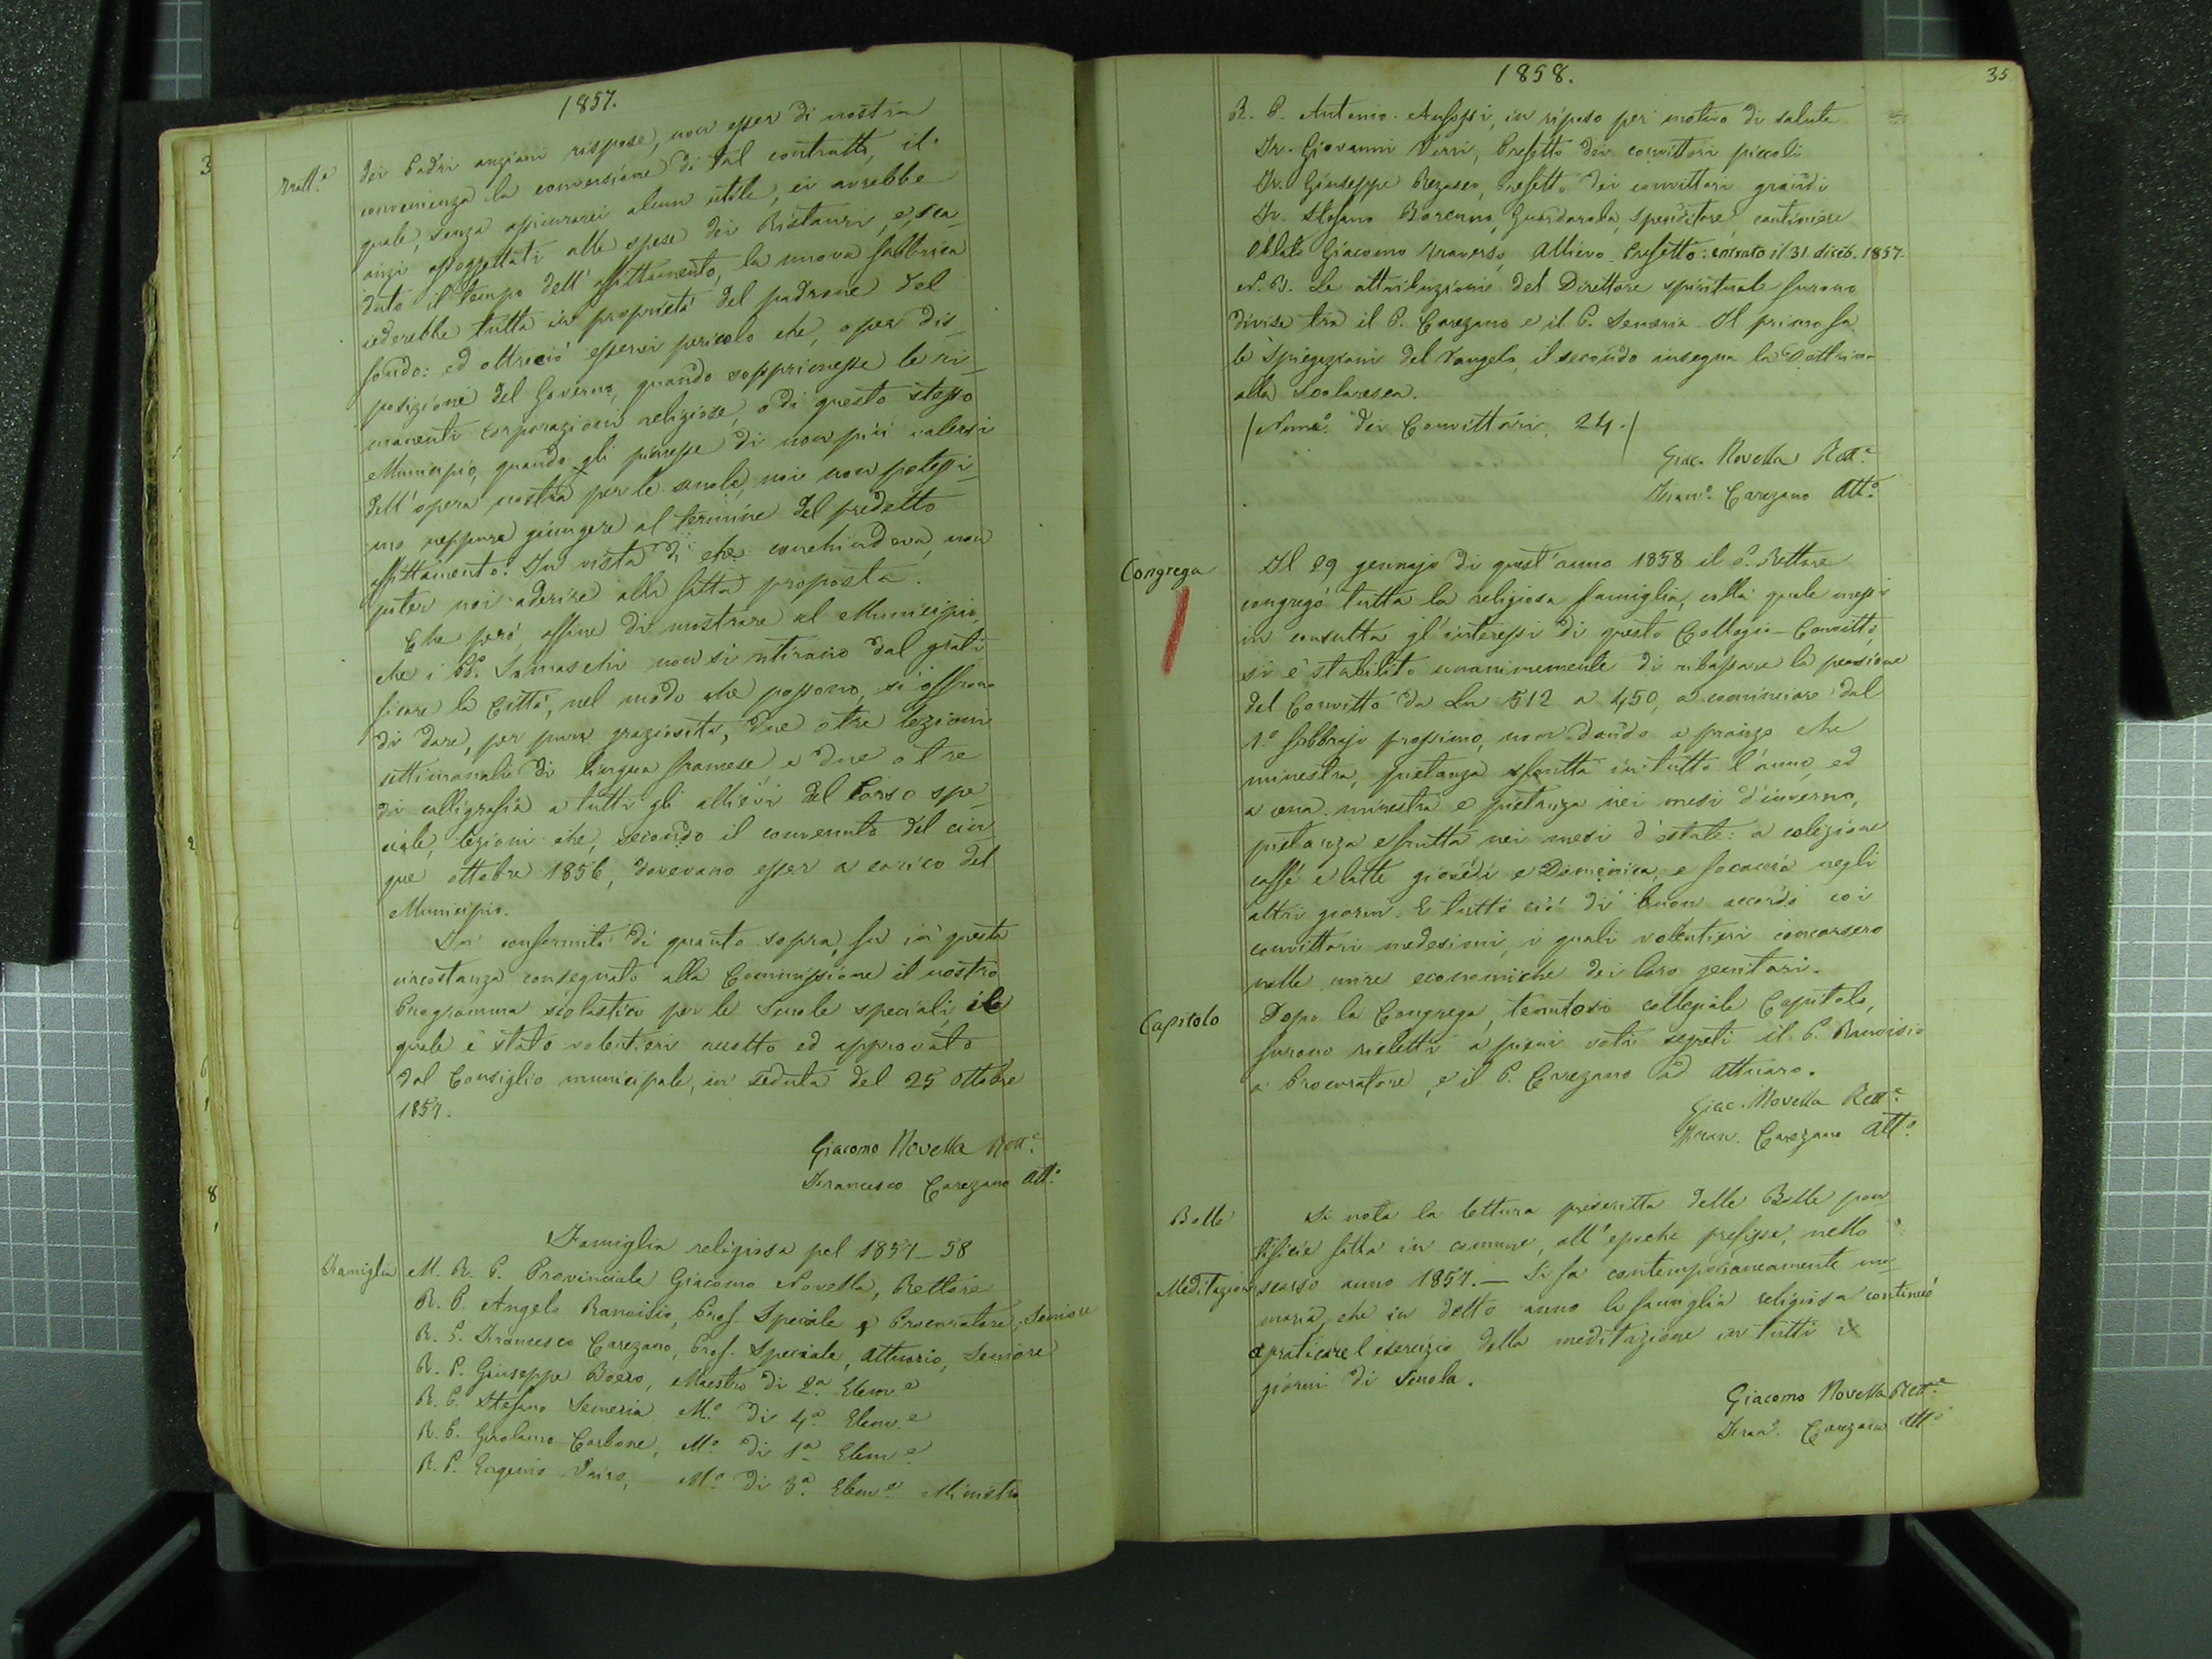 1857.
3
Tratt.e
dei Padri anziani rispose, non esser di nostra
convenienza la conversione di tal contratto, il
quale, senza assicurarci alcun utile, ci avrebbe
anzi assoggettati alle spese dei Ristauri, e, sca-
duto il tempo dell'affittamento, la nuova fabbrica
cederebbe tutta in proprietà del padrone del
fondo: ed oltreciò esservi pericolo che, o per dis-
posizione del Governo, quando sopprimesse le ri-
manenti corporazioni religiose, o di questo stesso
Municipio, quando gli piacesse di non più valersi
dell'opera nostra per le scuole, noi non potessi-
mo neppure giungere al termine del predetto
affittamento. In vista di che conchiudeva, non
poter noi aderire alla fatta proposta.
Che però, affine di mostrare al Municipio,
che i PP. Somaschi non si ritirano dal grati-
ficare la Città, nel modo che possono, si offrono
di dare, per pura graziosità, due o tre lezioni
settimanali di lingua francese e due o tre
di calligrafia a tutti gli allievi del Corso spe-
ciale, lezioni che, secondo il convenuto del cin-
que ottobre 1856, dovevano esser a carico del
Municipio.
In conformità di quanto sopra, fu in questa
circostanza consegnato alla Commissione il nostro
Programma scolastico per le Scuole speciali, il
quale è stato volentieri accolto ed approvato
dal Consiglio municipale, in seduta del 25 ottobre
1857.
Giacomo Novella Rett.e
Francesco Carezano Att.o
Famiglia religiosa pel 1857-58
Famiglia
M. R. P. Provinciale Giacomo Novella, Rettore
R. P. Angelo Ranoisio, Prof. Speciale e Procuratore, Seniore
R. P. Francesco Carezano, Prof. Speciale, Attuario, Seniore
R. P. Giuseppe Boero, Maestro di 2.a Elem.e
R. P. Stefano Semeria M.o di 4.a Elem.e
R. P. Girolamo Carbone, M.o di 1.a Elem.e
R. P. Eugenio Vairo, M.o di 3.a Elem.e Ministro
1858.
35
R. P. Antonio in riposo per motivo di salute
Fr. Giovanni Verri, Prefetto dei convittori piccoli
Fr. Giuseppe Rezasco, Prefetto dei convittori grandi
Fr. Stefano Guardaroba, spenditore, cantiniere
Oblato Giacomo Traverso, Allievo Prefetto: entrato il 31. diceb. 1857.
N. B. Le attribuzioni del Direttore spirituale furono
divise tra il P. Carezano e il P. Semeria. Il primo fa
le spiegazioni del Vangelo, il secondo insegna la Dottrina
alla Scolaresca.
/ Num.o dei Convittori, 24. /
Giac. Novella Rett.e
Franc.o Carezano Att.o
Congrega
Il 29 gennajo di quest'anno 1858 il P. Rettore
congregò tutta la religiosa famiglia, colla quale messi
in consulta gl'interessi di questo Collegio-Convitto,
si è stabilito unanimemente di ribassare la pensione
del Convitto da Ln 512 a 450, a cominciare dal
1.o febbrajo prossimo, non dando a pranzo che
minestra, pietanza e frutta in tutto l'anno, ed
a cena minestra e pietanza nei mesi d'inverno,
pietanza e frutta nei mesi d'estate: a colezione
caffè e latte giovedì e Domenica, e focaccia negli
altri giorni. E tutto ciò di buon accordo coi
convittori medesimi, i quali volentieri concorsero
nelle mire economiche dei loro genitori.
Capitolo
Dopo la Congrega, tenutosi collegiale Capitolo,
furono rieletti a pieni voti segreti il P. Ranoisio
a Procuratore, e il P. Carezano ad Attuaro.
Giac. Novella Rett.e
Fran. Carezano Att.o
Bolle
Si nota la lettura prescritta delle Bolle pon-
tificie fatta in comune, all'epoche prefisse, nello
Meditazioni
scorso anno 1857. — Si fa contemporaneamente me-
moria, che in detto anno la famiglia religiosa continuò
a praticare l'esercizio della meditazione in tutti i
giorni di scuola.
Giacomo Novella Rett.e
Fran.o Carezano Att.o